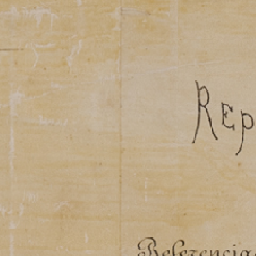 Rep
Referencia